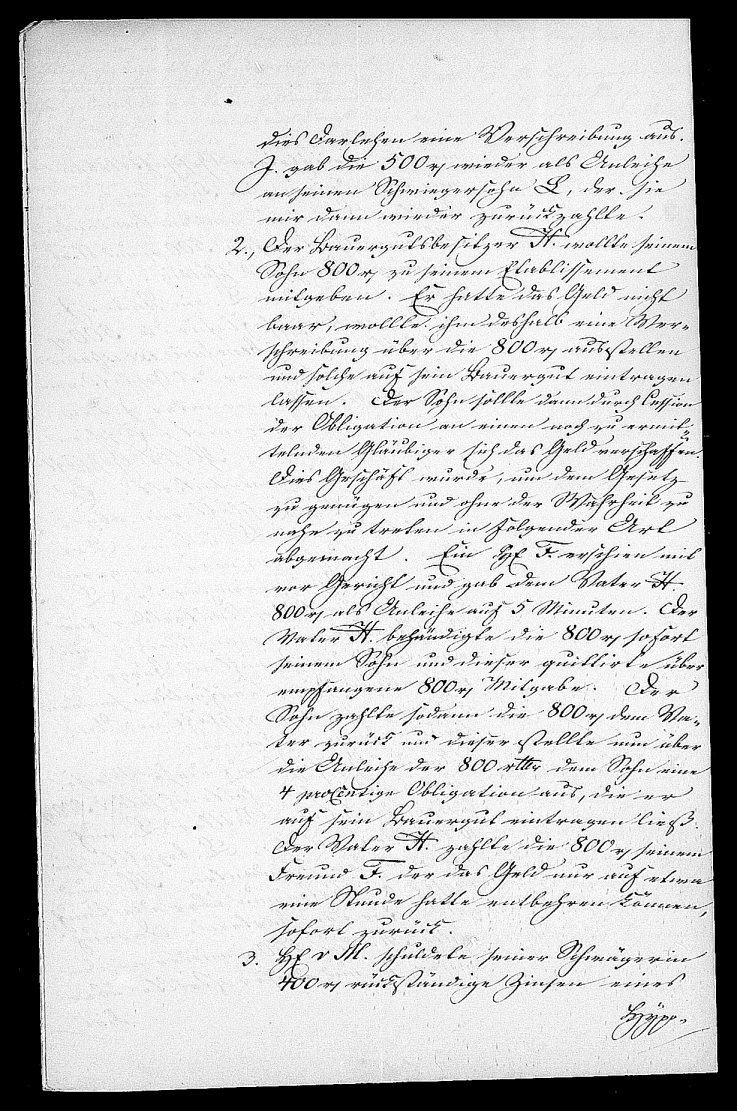 dies Darlehen eine Verschreibung aus.
J. gab die 500 rh wieder als Anleihe
an seinen Schwiegersohn L, der sie
mir dann wieder zurückzahlte.
2., Der Bauergutsbesitzer H. wollte seinem
Sohn 800 rh zu seinem Etablissement
mitgeben. Er hatte das Geld nicht
baar, wollte ihm deshalb eine Ver-
schreibung über die 800 rh ausstellen
und solche auf sein Bauergut eintragen
lassen. Der Sohn sollte dann durch Cession
der Obligation an einen noch zu ermit-
telnden Gläubiger sich das Geld verschaffen.
Dies Geschäft wurde, um dem Gesetz
zu genügen und ohne der Wahrheit zu
nahe zu treten in folgender Art
abgemacht. Ein H. F. erschien mit
vor Gericht und gab dem Vater H
800 rh als Anleihe auf 5 Minuten. Der
Vater H. behändigte die 800 rh sofort
seinem Sohn und dieser quittirte über
empfangene 800 rh Mitgabe. Der
Sohn zahlte sodann die 800 rh dem Va-
ter zurück und dieser stellte nun über
die Anleihe der 800 rtlr dem Sohn eine
4 procentige Obligation aus, die er
auf sein Bauergut eintragen ließ.
Der Vater H. zahlte die 800 rh seinem
Freund F. der das Geld nur auf etwa
eine Stunde hatte entbehren können,
sofort zurück.
3. H. v M. schuldete seiner Schwägerin
400 rh rückständige Zinsen eines
Hypo-